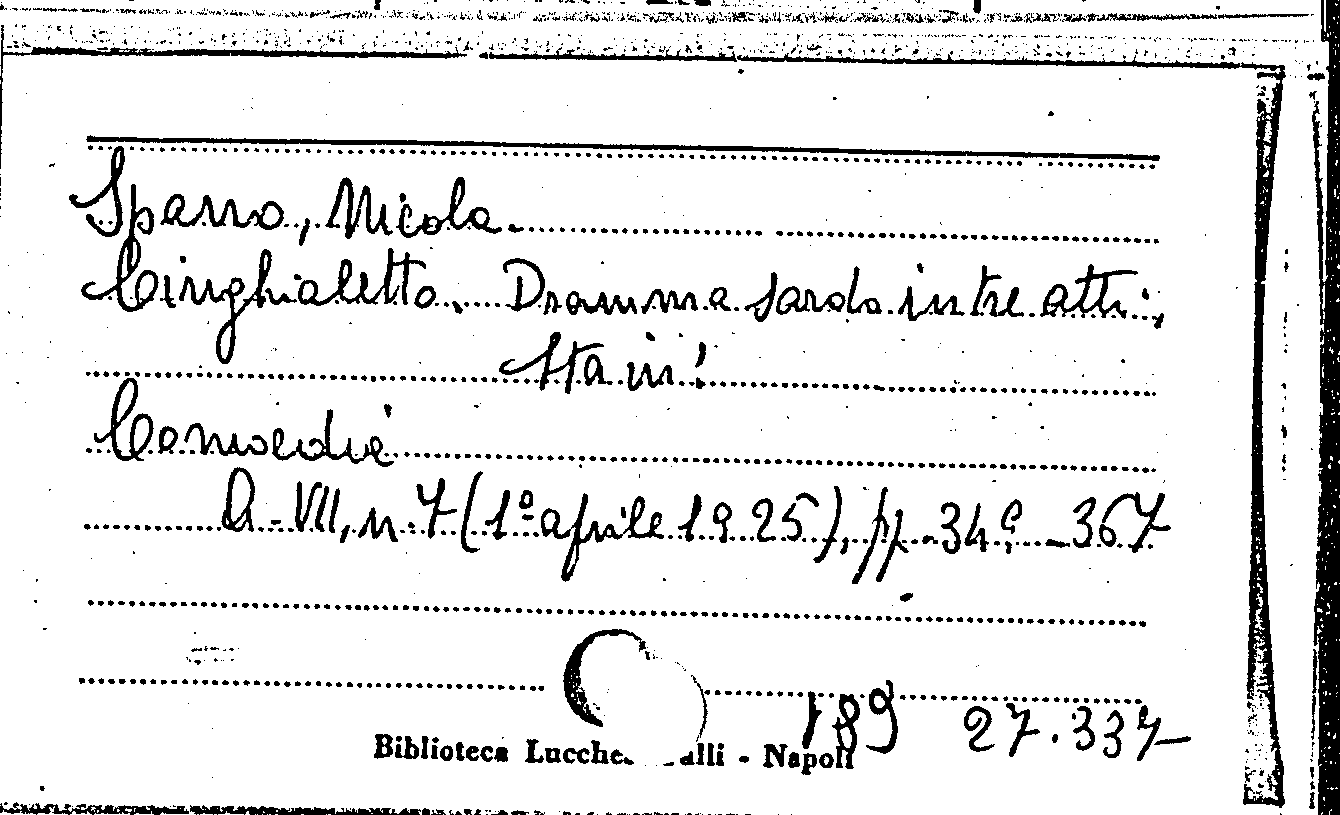 Spano, Nicola.
Cinghialetto. Dramma sardo in tre atti,
Comoedia
A. VII, n. 7 (1º aprile 1925), pp. 349-367
189 27.337
Biblioteca Lucche alli - Napoli